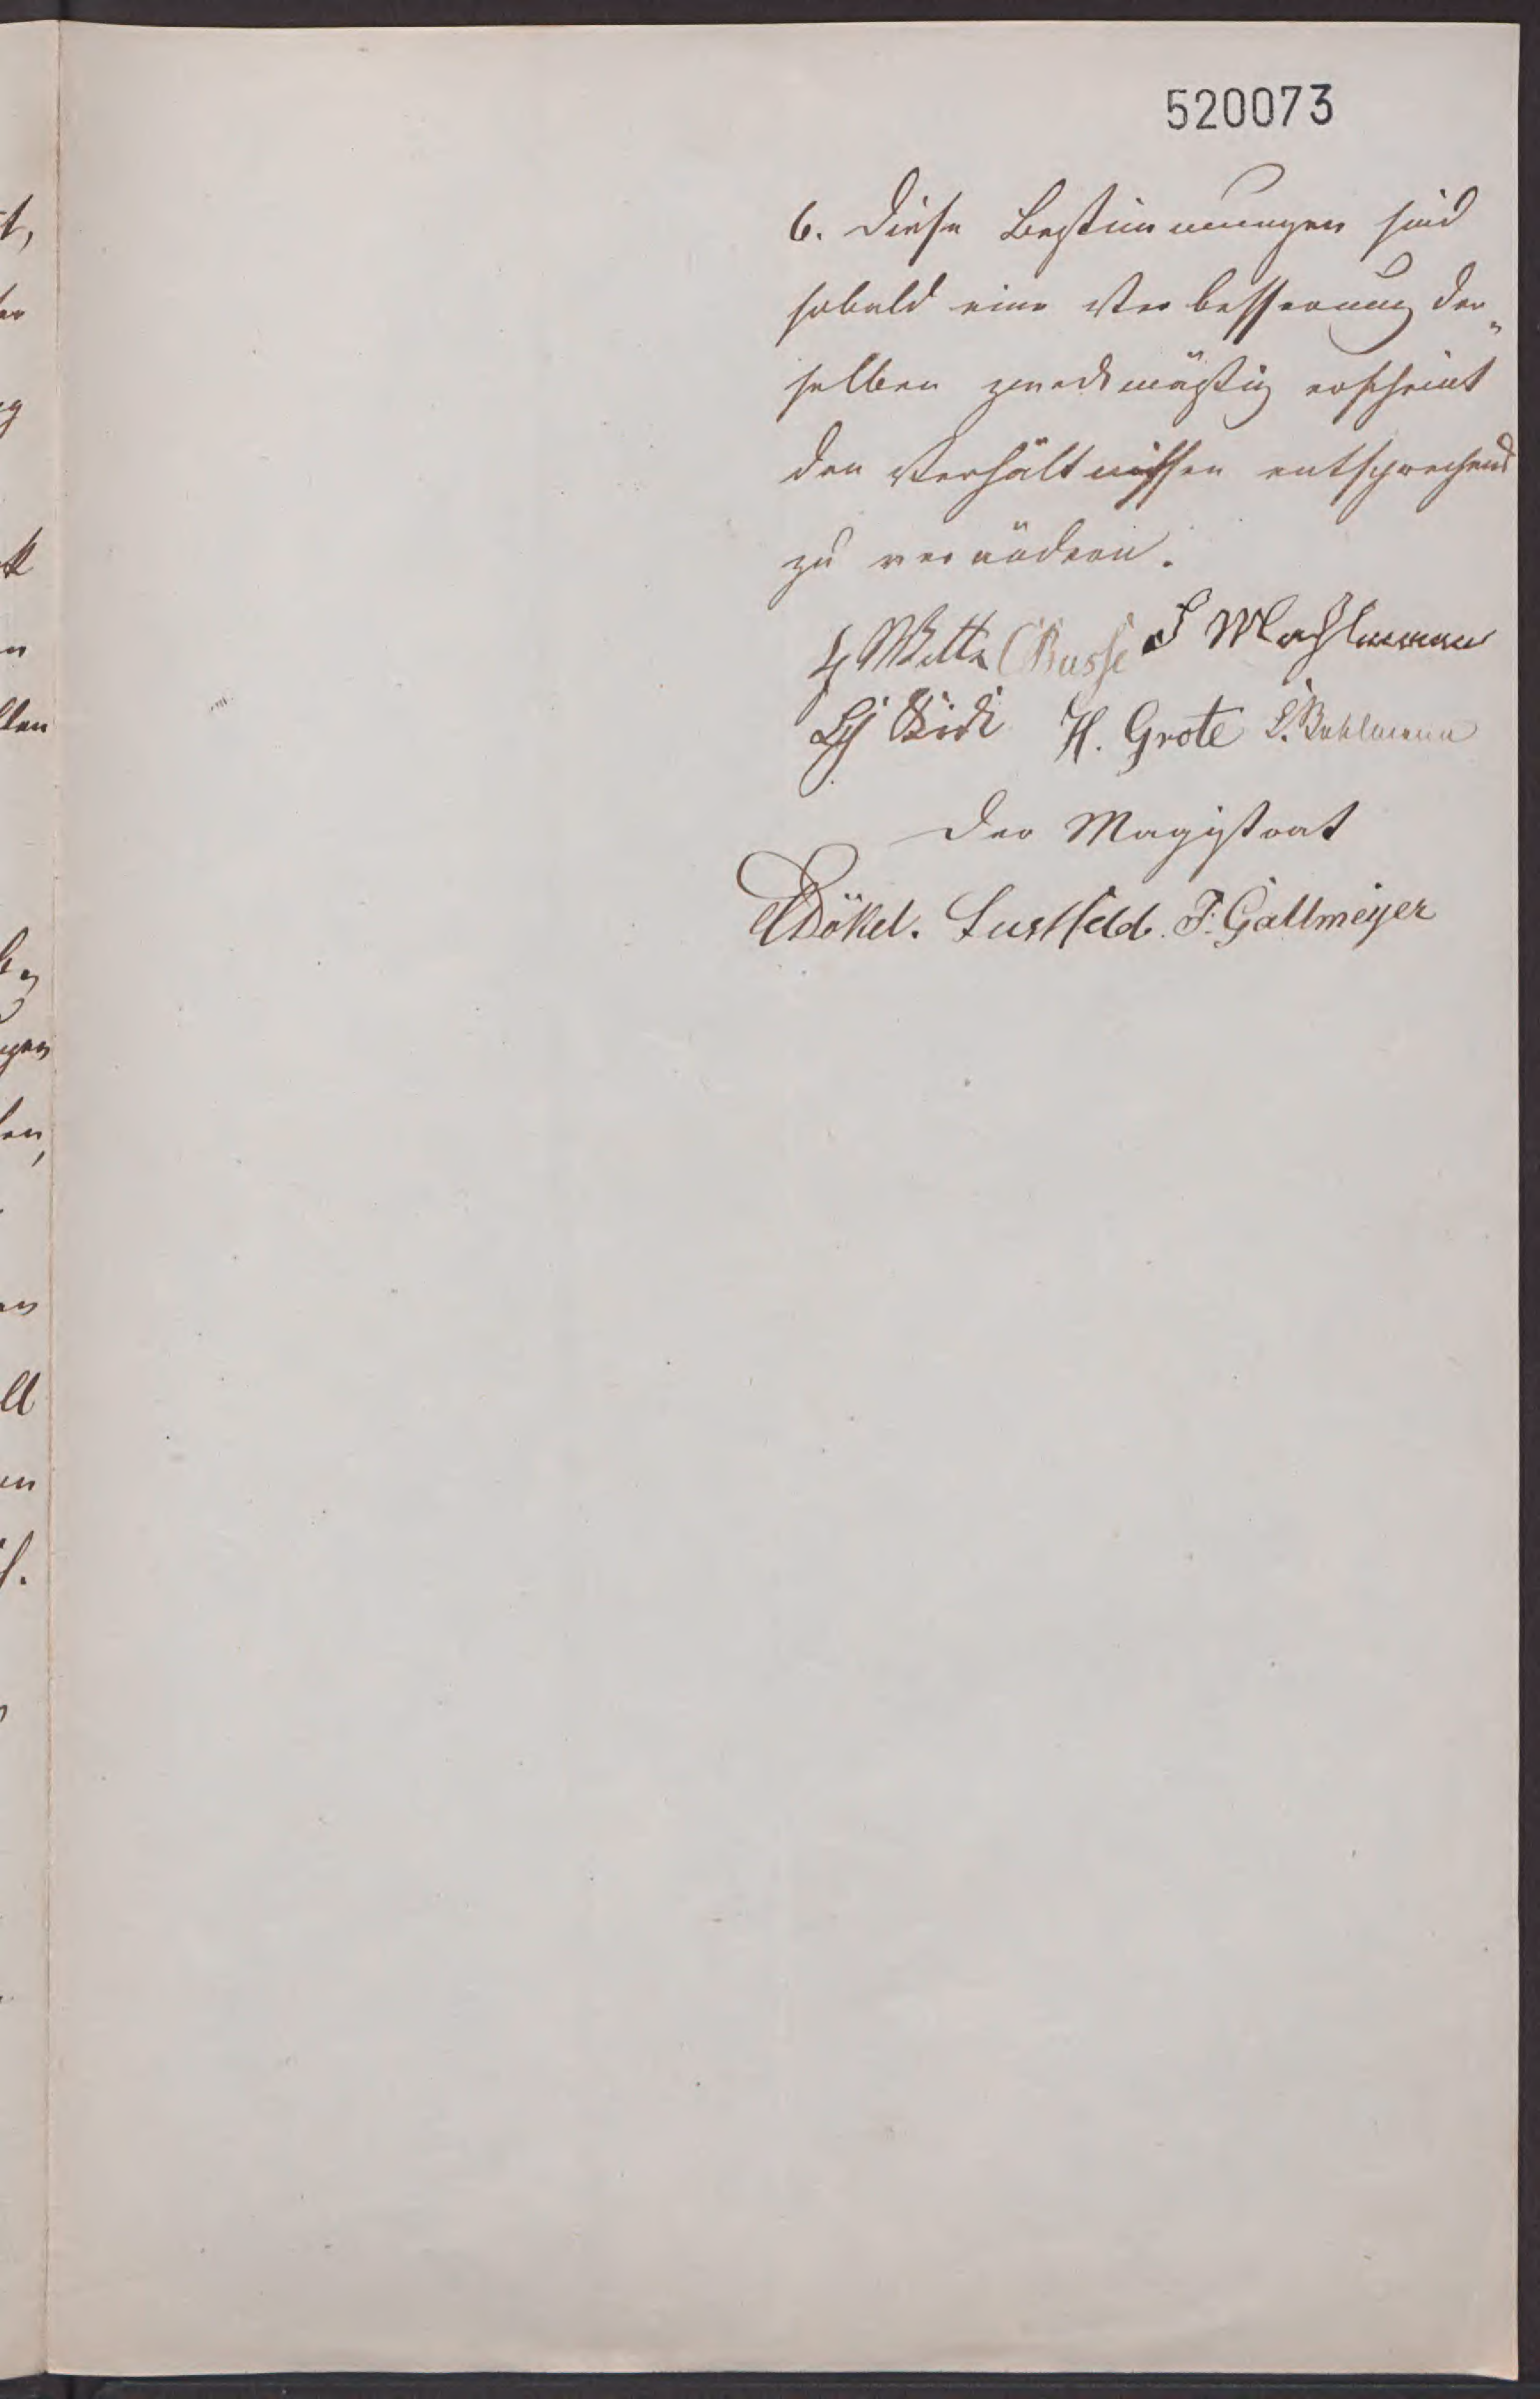 520073
6. Diese Bestimmungen sind
sobald eine Verbesserung der„
selben zweckmäßig erscheint
den Verhältnissen entsprechend
zu verändern.
Witte Busse
H. Grote
Der Magistrat
Dökel. Lustfeld. F. Gallmeyer